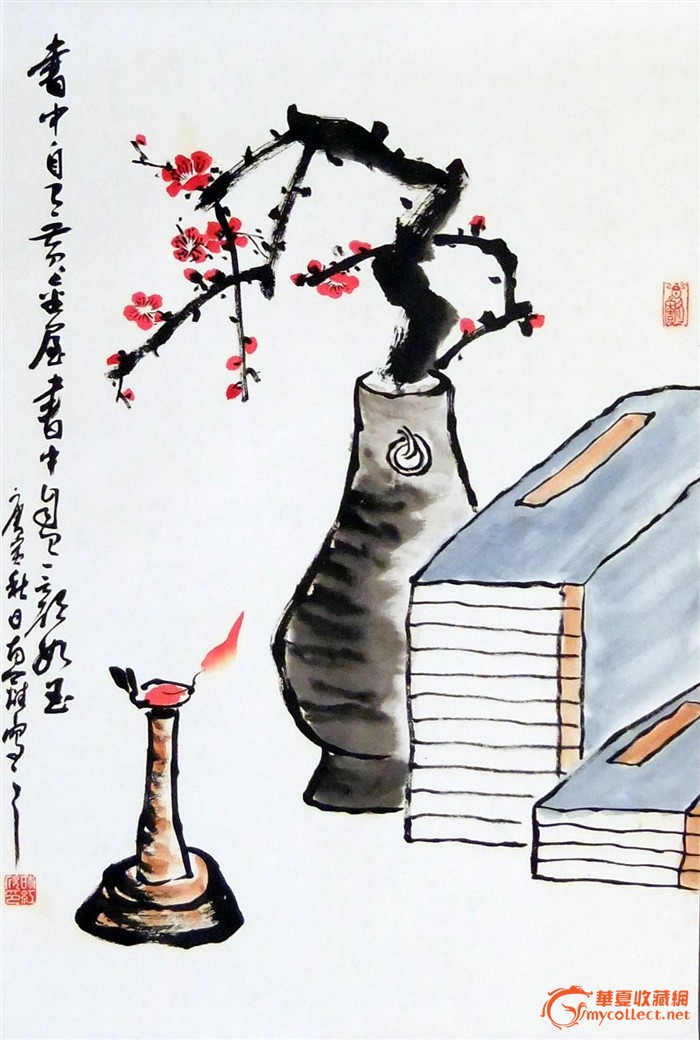 書中自有黄金屋書中自有颜如玉
庚寅秋日
華夏收藏網
mycollect.net